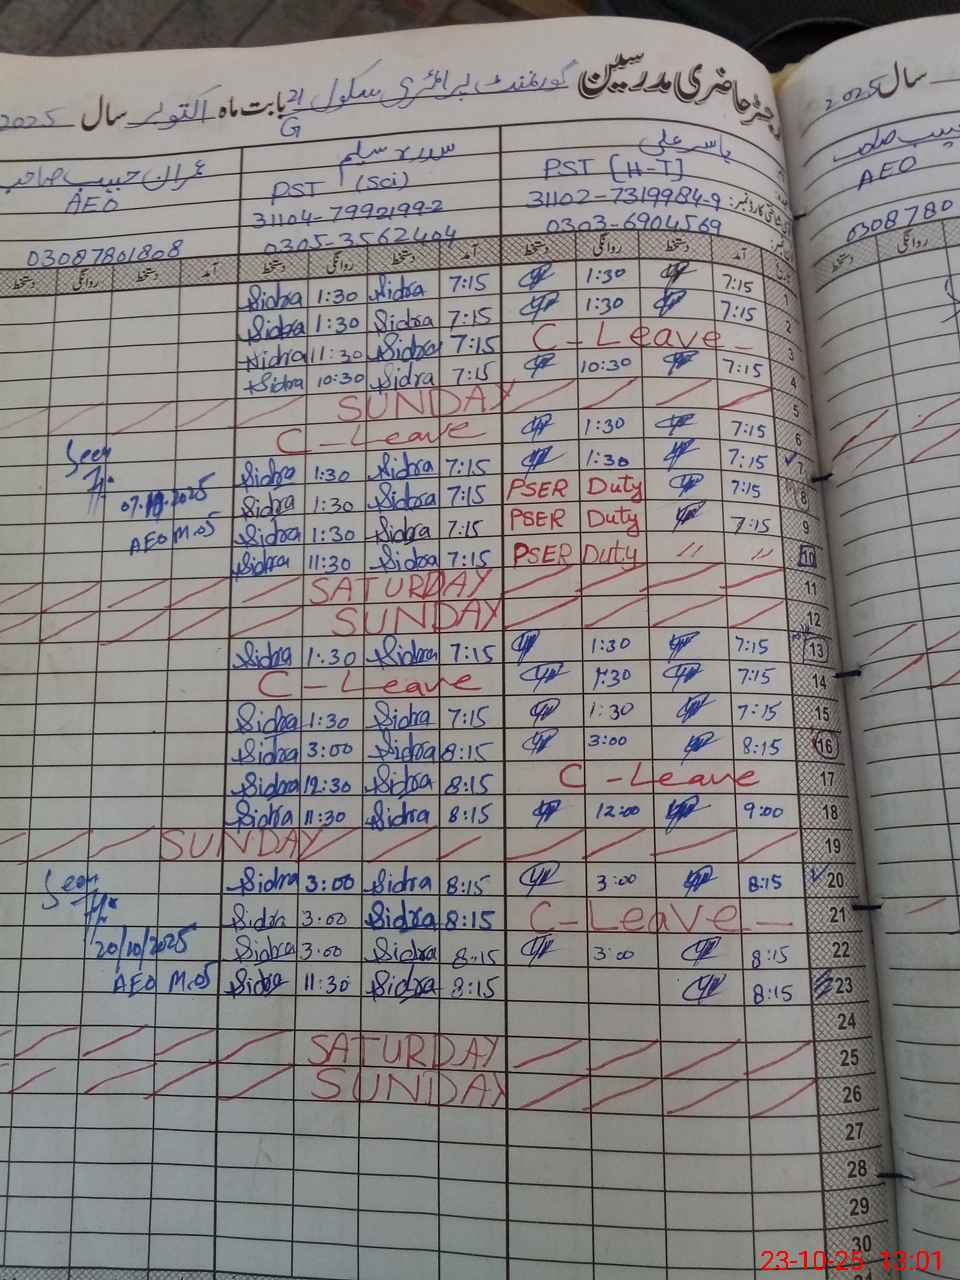 رجسٹر حاضری مدرسین گورنمنٹ پرائمری سکول 21 G بابت ماہ اکتوبر سال 2025
یاسر علی
سدرہ سلیم
عمران حبیب صاحب
PST [H-T]
PST (Sci)
AEO
31102-7319984-9
31104-7992199-2
0303-6904569
0305-3562404
03087801808
آمد دستخط روانگی دستخط آمد دستخط روانگی دستخط آمد دستخط روانگی دستخط
Sidra 1:30 Sidra 7:15 1:30 7:15 1
Sidra 1:30 Sidra 7:15 1:30 7:15 2
Sidra 11:30 Sidra 7:15 C-Leave- 3
Sidra 10:30 Sidra 7:15 10:30 7:15 4
SUNDAY 5
C-Leave 1:30 7:15 6
Seen Sidra 1:30 Sidra 7:15 1:30 7:15 7
07.10.2025 Sidra 1:30 Sidra 7:15 PSER Duty 7:15 8
AEO M.05 Sidra 1:30 Sidra 7:15 PSER Duty 7:15 9
Sidra 11:30 Sidra 7:15 PSER Duty " " 10
SATURDAY 11
SUNDAY 12
Sidra 1:30 Sidra 7:15 1:30 7:15 13
C-Leave 1:30 7:15 14
Sidra 1:30 Sidra 7:15 1:30 7:15 15
Sidra 3:00 Sidra 8:15 3:00 8:15 16
Sidra 12:30 Sidra 8:15 C-Leave 17
Sidra 11:30 Sidra 8:15 12:00 9:00 18
SUNDAY 19
Seen Sidra 3:00 Sidra 8:15 3:00 8:15 20
Sidra 3:00 Sidra 8:15 C-Leave- 21
20/10/2025 Sidra 3:00 Sidra 8:15 3:00 8:15 22
AEO M.05 Sidra 11:30 Sidra 8:15 8:15 23
24
SATURDAY 25
SUNDAY 26
27
28
29
30
سال 2025
حبیب صاحب
AEO
0308780
روانگی دستخط
23-10-25 13:01